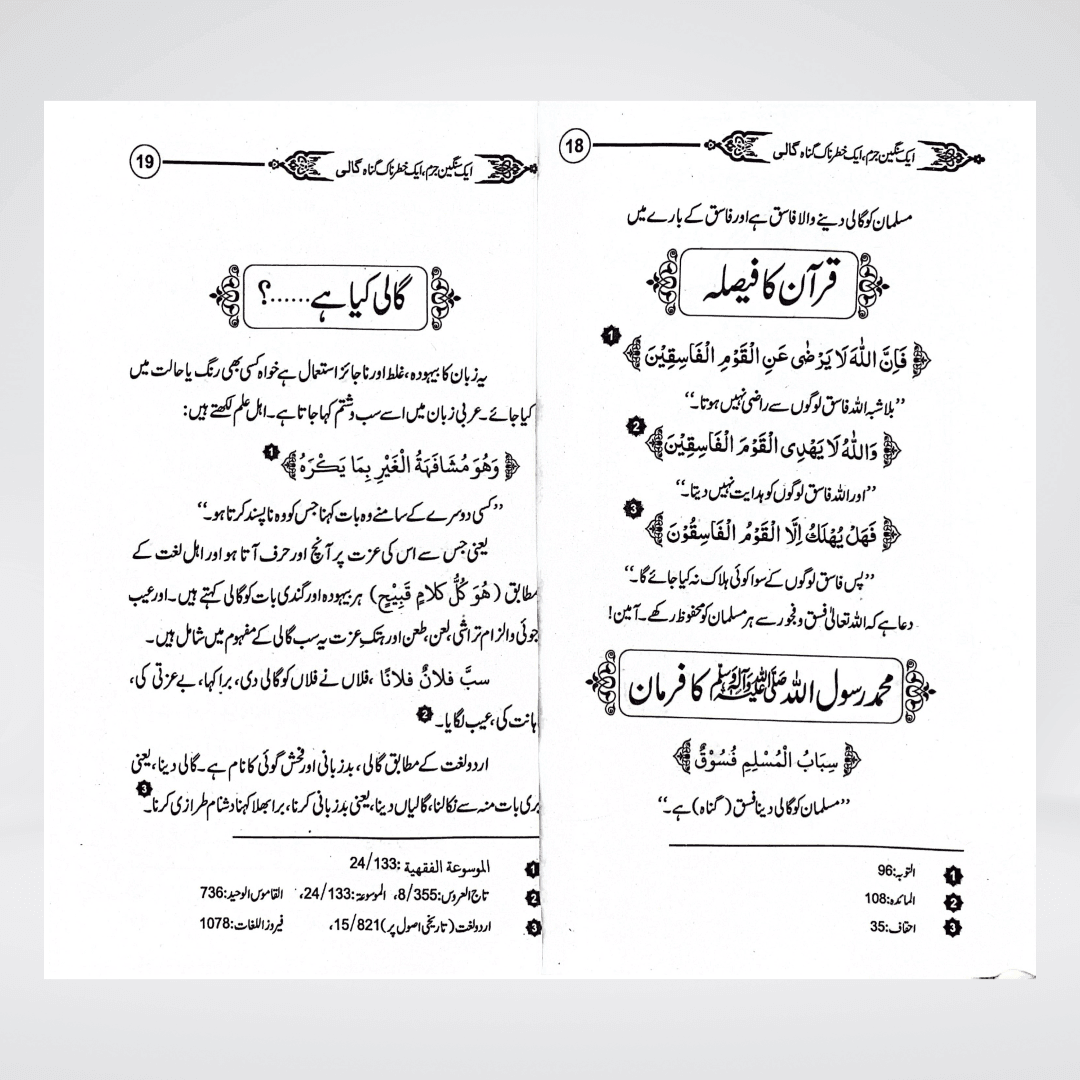 18
ایک سنگین جرم، ایک خطرناک گناہ گالی
مسلمان کو گالی دینے والا فاسق ہے اور فاسق کے بارے میں
قرآن کا فیصلہ
فَاِنَّ اللّٰهَ لَا يَرْضٰى عَنِ الْقَوْمِ الْفَاسِقِيْنَ 1
’’بلاشبہ اللہ فاسق لوگوں سے راضی نہیں ہوتا۔‘‘
وَاللّٰهُ لَا يَهْدِى الْقَوْمَ الْفَاسِقِيْنَ 2
’’اور اللہ فاسق لوگوں کو ہدایت نہیں دیتا۔‘‘
فَهَلْ يُهْلَكُ اِلَّا الْقَوْمُ الْفَاسِقُوْنَ 3
’’پس فاسق لوگوں کے سوا کوئی ہلاک نہ کیا جائے گا۔‘‘
دعا ہے کہ اللہ تعالیٰ فسق و فجور سے ہر مسلمان کو محفوظ رکھے۔ آمین!
محمد رسول اللہ صلی اللہ علیہ وآلہ وسلم کا فرمان
سِبَابُ الْمُسْلِمِ فُسُوْقٌ
’’مسلمان کو گالی دینا فسق (گناہ) ہے۔‘‘
1 التوبہ:96
2 المائدہ:108
3 احقاف:35
19
ایک سنگین جرم، ایک خطرناک گناہ گالی
گالی کیا ہے......؟
یہ زبان کا بیہودہ، غلط اور ناجائز استعمال ہے خواہ کسی بھی رنگ یا حالت میں
کیا جائے۔ عربی زبان میں اسے سب وشتم کہا جاتا ہے۔ اہل علم لکھتے ہیں:
وَهُوَ مُشَافَهَةُ الْغَيْرِ بِمَا يَكْرَهُ 1
’’کسی دوسرے کے سامنے وہ بات کہنا جس کو وہ ناپسند کرتا ہو۔‘‘
یعنی جس سے اس کی عزت پر آنچ اور حرف آتا ہو اور اہل لغت کے
مطابق (هُوَ كُلُّ كَلامٍ قَبِيْحٍ) ہر بیہودہ اور گندی بات کو گالی کہتے ہیں۔ اور عیب
جوئی و الزام تراشی، لعن، طعن اور ہتک عزت یہ سب گالی کے مفہوم میں شامل ہیں۔
سبَّ فلانٌ فلانًا ، فلاں نے فلاں کو گالی دی، برا کہا، بے عزتی کی،
ہانت کی، عیب لگایا۔ 2
اردو لغت کے مطابق گالی، بدزبانی اور فحش گوئی کا نام ہے۔ گالی دینا، یعنی
بری بات منہ سے نکالنا، گالیاں دینا، یعنی بدزبانی کرنا، برا بھلا کہنا دشنام طرازی کرنا۔ 3
1 الموسوعة الفقهية :24/133
2 تاج العروس:8/355، الموسوعۃ:24/133، القاموس الوحید:736
3 اردو لغت (تاریخی اصول پر)15/821، فیروز اللغات:1078